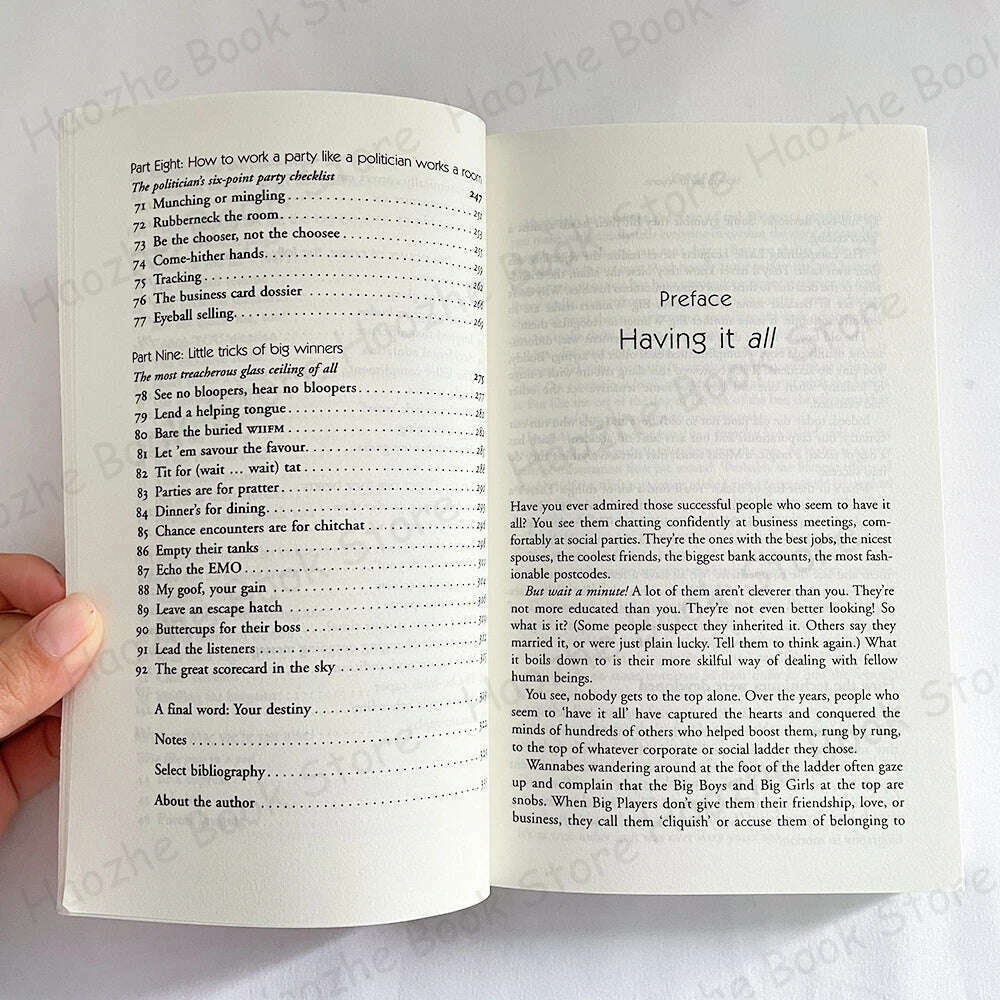 Part Eight: How to work a party like a politician works a room
The politician's six-point party checklist 247
71 Munching or mingling 251
72 Rubberneck the room 253
73 Be the chooser, not the choosee 255
74 Come-hither hands 259
75 Tracking 262
76 The business card dossier 266
77 Eyeball selling 269
Part Nine: Little tricks of big winners
The most treacherous glass ceiling of all 275
78 See no bloopers, hear no bloopers 277
79 Lend a helping tongue
80 Bare the buried WIIFM
81 Let 'em savour the favour
82 Tit for (wait … wait) tat
83 Parties are for pratter
84 Dinner's for dining
85 Chance encounters are for chitchat
86 Empty their tanks
87 Echo the EMO
88 My goof, your gain
89 Leave an escape hatch
90 Buttercups for their boss
91 Lead the listeners
92 The great scorecard in the sky
A final word: Your destiny
Notes
Select bibliography
About the author
Preface
Having it all
Have you ever admired those successful people who seem to have it
all? You see them chatting confidently at business meetings, com-
fortably at social parties. They're the ones with the best jobs, the nicest
spouses, the coolest friends, the biggest bank accounts, the most fash-
ionable postcodes.
But wait a minute! A lot of them aren't cleverer than you. They're
not more educated than you. They're not even better looking! So
what is it? (Some people suspect they inherited it. Others say they
married it, or were just plain lucky. Tell them to think again.) What
it boils down to is their more skilful way of dealing with fellow
human beings.
You see, nobody gets to the top alone. Over the years, people who
seem to 'have it all' have captured the hearts and conquered the
minds of hundreds of others who helped boost them, rung by rung,
to the top of whatever corporate or social ladder they chose.
Wannabes wandering around at the foot of the ladder often gaze
up and complain that the Big Boys and Big Girls at the top are
snobs. When Big Players don't give them their friendship, love, or
business, they call them 'cliquish' or accuse them of belonging to
Haozhe Book Store